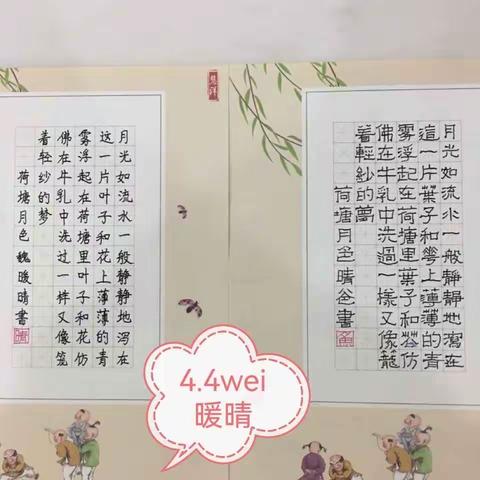 月光如流水一般静静地泻在
这一片叶子和花上薄薄的青
雾浮起在荷塘里叶子和花仿
佛在牛乳中洗过一样又像笼
着轻纱的梦
荷塘月色 魏暖晴書
月光如流水一般靜靜地瀉在
這一片葉子和花上薄薄的青
霧浮起在荷塘里葉子和花仿
佛在牛乳中洗過一樣又像籠
着輕紗的夢
荷塘月色晴爸書
4.4wei
暖晴